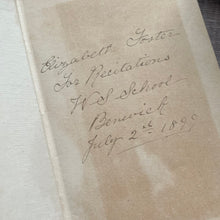 Elizabeth Foster
For Recitations
W S School
Berwick
July 2nd 1899